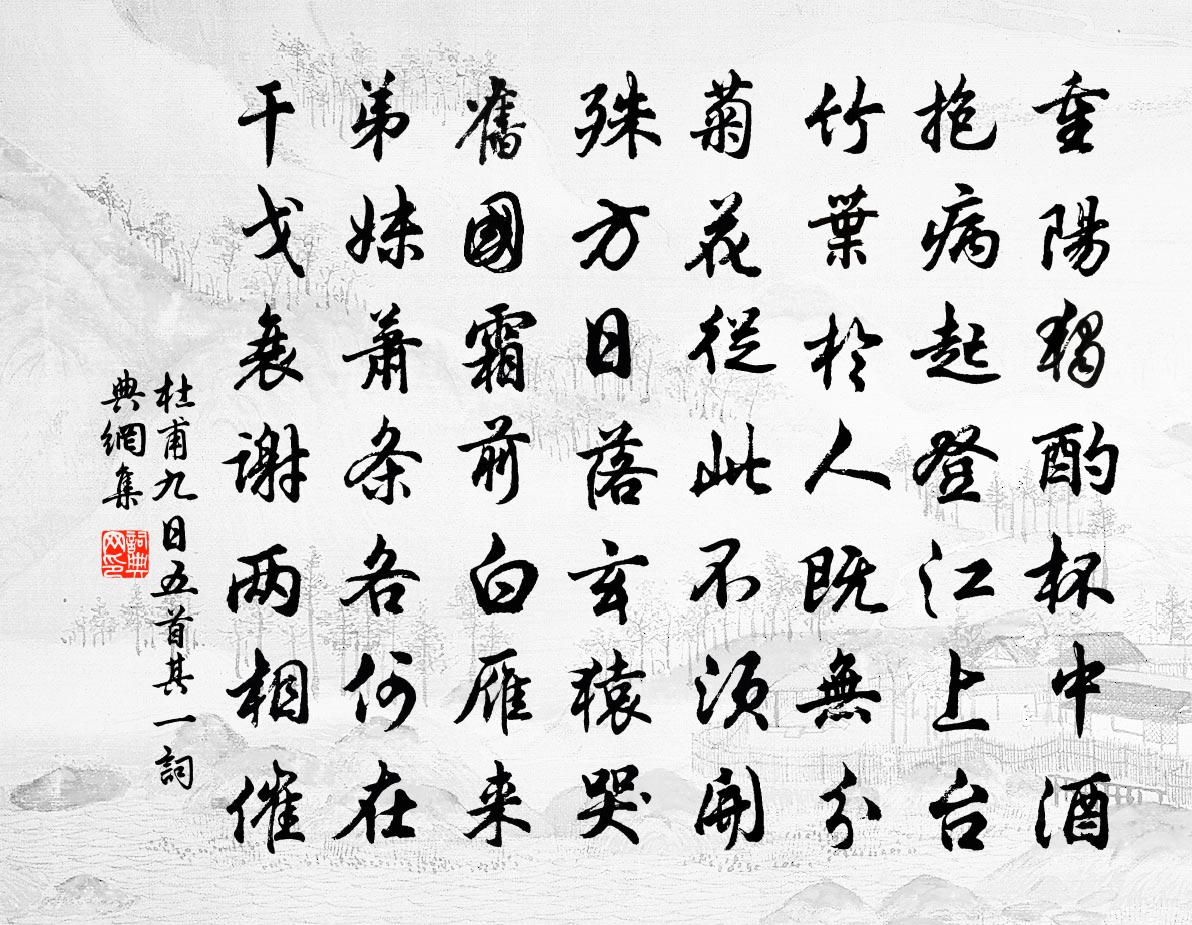 重陽獨酌杯中酒
抱病起登江上台
竹葉於人既無分
菊花從此不須開
殊方日落玄猿哭
舊國霜前白雁来
弟妹蕭条各何在
干戈衰謝两相催
杜甫九日五首其一詞
典網集
詞典
网印